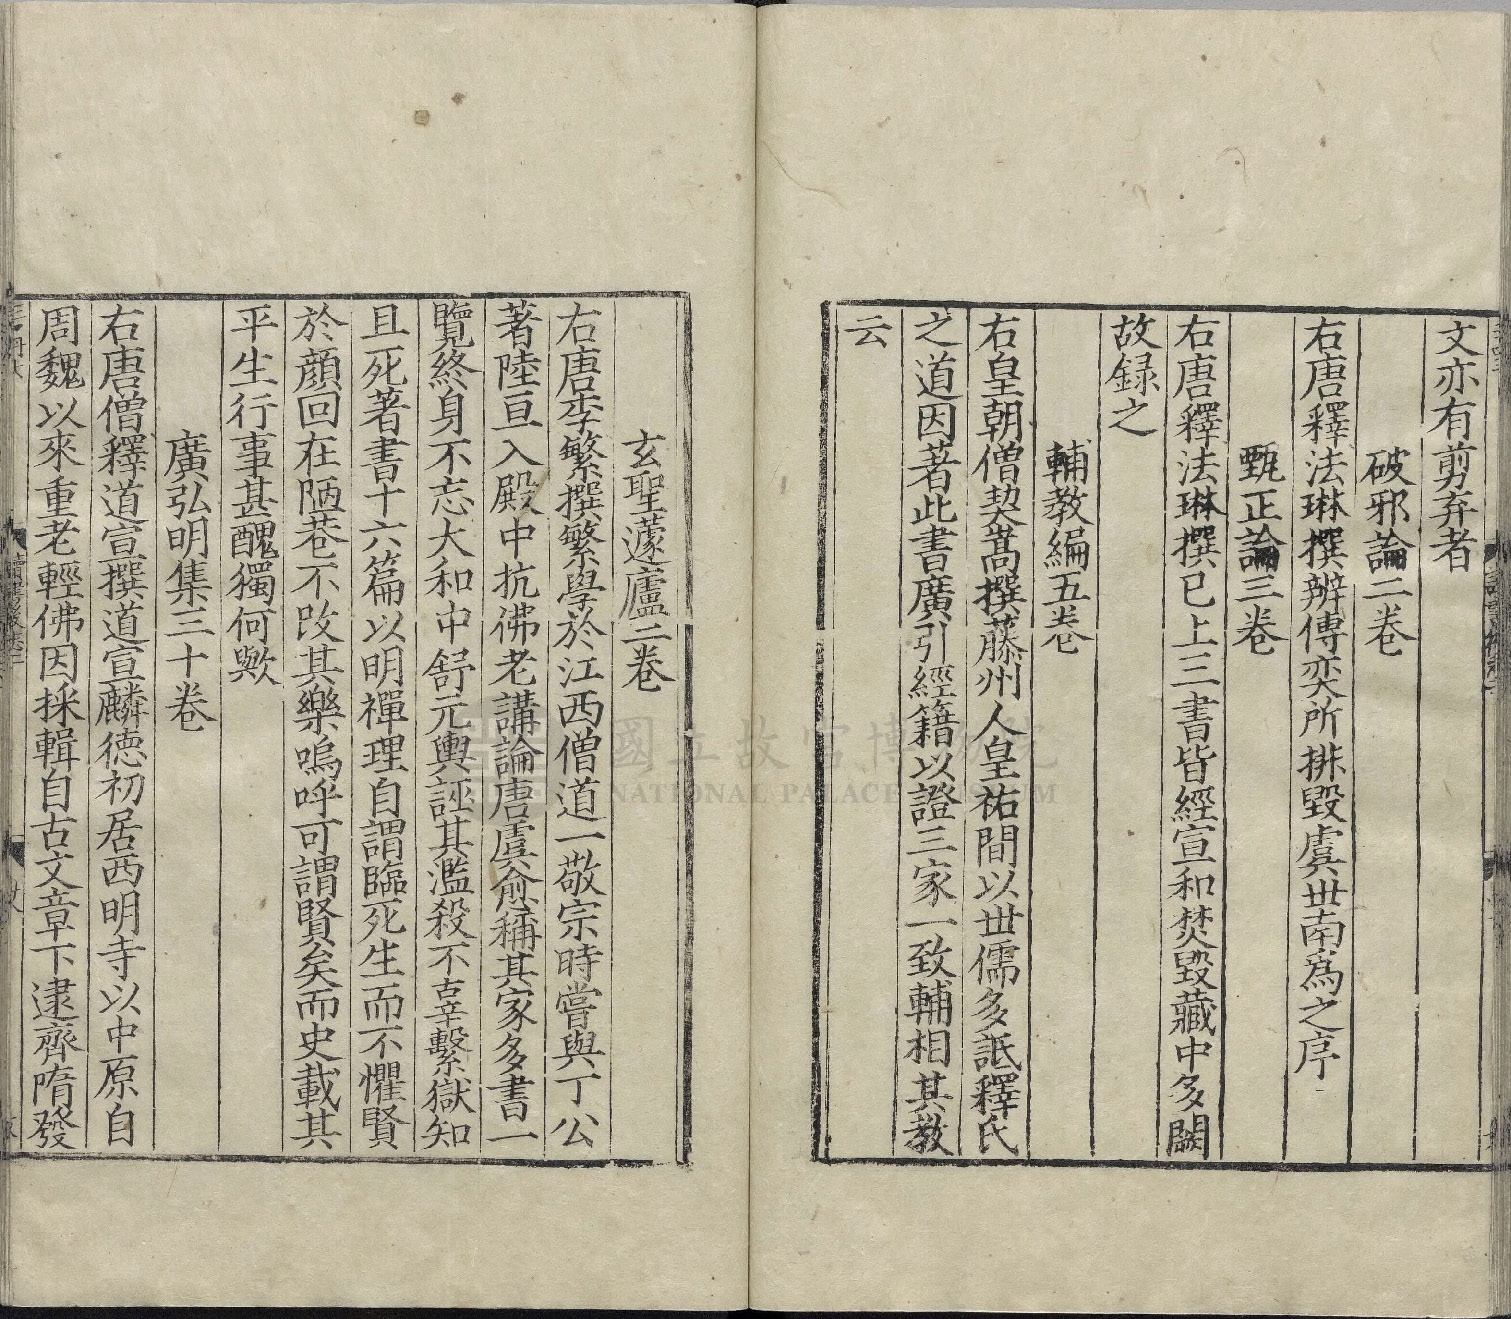 文亦有剪弃者
破邪論二卷
右唐釋法琳撰辨傅奕所排毀虞世南爲之序
甄正論三卷
右唐釋法琳撰已上三書皆經宣和焚毀藏中多闕
故録之
輔教編五卷
右皇朝僧契嵩撰藤州人皇祐間以世儒多詆釋氏
之道因著此書廣引經籍以證三家一致輔相其教
云
玄聖蘧廬二卷
右唐李繁撰繁學於江西僧道一敬宗時嘗與丁公
著陸亘入殿中抗佛老講論唐虞愈稱其家多書一
覽終身不忘大和中舒元輿誣其濫殺不辜繫獄知
且死著書十六篇以明禪理自謂臨死生而不懼賢
於顔回在陋巷不改其樂嗚呼可謂賢矣而史載其
平生行事甚醜獨何歟
廣弘明集三十卷
右唐僧釋道宣撰道宣麟德初居西明寺以中原自
周魏以來重老輕佛因採輯自古文章下逮齊隋發
國立故宮博物院
NATIONAL PALACE MUSEUM